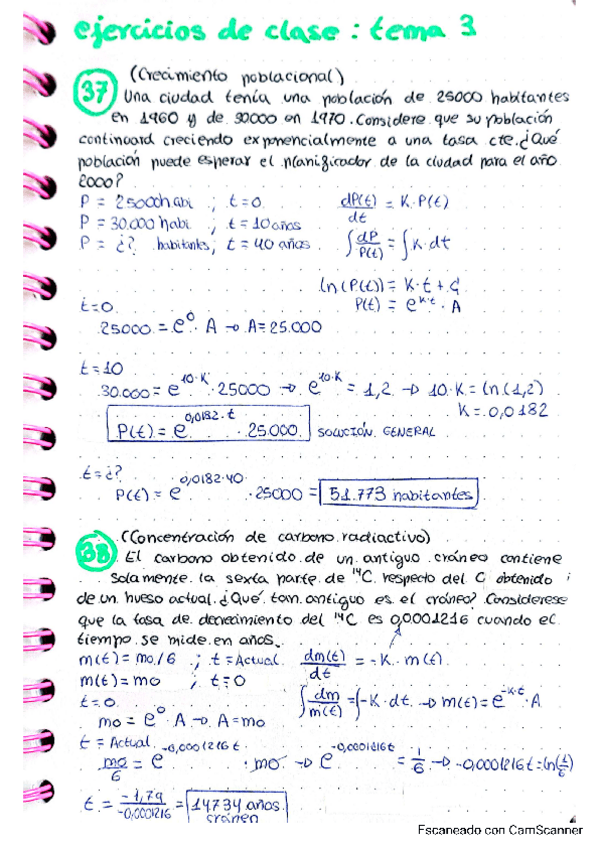 ejercicios de clase : tema 3
37 (Crecimiento poblacional)
Una ciudad tenía una población de 25000 habitantes
en 1960 y de 30000 en 1970. Considere que su población
continuará creciendo exponencialmente a una tasa cte. ¿Qué
población puede esperar el planificador de la ciudad para el año
2000?
P = 25000 habi ; t = 0 dP(t)/dt = K · P(t)
P = 30.000 habi ; t = 10 años
P = ¿? habitantes; t = 40 años ∫ dP/P(t) = ∫ K · dt
ln (P(t)) = K · t + C
t = 0 P(t) = e^K·t · A
25000 = e^0 · A → A = 25.000
t = 10
30.000 = e^10·K · 25000 → e^10·K = 1,2 → 10·K = ln (1,2)
K = 0,0182
P(t) = e^0,0182·t · 25.000 SOLUCIÓN GENERAL
t = ¿?
P(t) = e^0,0182·40 · 25000 = 51.773 habitantes
38 (Concentración de carbono radiactivo)
El carbono obtenido de un antiguo cráneo contiene
solamente la sexta parte de ¹⁴C respecto del C obtenido
de un hueso actual. ¿Qué tan antiguo es el cráneo? Considerese
que la tasa de decrecimiento del ¹⁴C es 0,0001216 cuando el
tiempo se mide en años.
m(t) = mo/6 ; t = Actual dm(t)/dt = -K · m(t)
m(t) = mo ; t = 0
t = 0 ∫ dm/m(t) = ∫ -K · dt → m(t) = e^-K·t · A
mo = e^0 · A → A = mo
t = Actual
mo/6 = e^-0,0001216t · mo → e^-0,0001216t = 1/6 → -0,0001216t = ln(1/6)
t = -1,79/-0,0001216 = 14734 años
cráneo
Escaneado con CamScanner